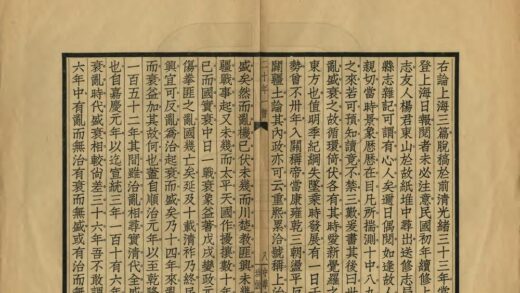 右論上海三篇脫稿於前清光緒三十三年嘗
登上海日報閱者未必注意民國初年續修上
志友人楊君東山於故紙堆中尋出送修志局
縣志雜記可謂有心人矣週日偶閱如逢故人
親切當時景象歷歷在目凡所揣測十中八九
之來若可預知讀竟不禁三歎爰書其後曰世
亂盛衰之故循環倚伏各有其時愛新覺羅之
東方也值明季紀綱失墜乘時發展有一日千
勢曾不卅年入關稱帝當康雍乾三朝盪平區
闢疆土論其內政亦可云重熙累洽號稱上治
盛矣然而亂機已伏未幾而川楚教匪興未幾
疆戰事起又未幾而太平天國作擾攘數十年
已而國實衰中日一戰衰象益著戊戌變政元
傷拳匪之亂國幾亡矣延及十載清祚乃終民
興宜可反亂為治起衰而盛矣乃十四年來
而衰益加其故何也蓋自順治元年以至乾隆
一百五十二年其間雖治亂相尋實清代全盛
也自嘉慶元年以迄宣統三年一百十有六年
衰亂時代盛衰相較尚差三十六年吾不敢謂
六年中有亂而無治有衰而無盛或有治而無